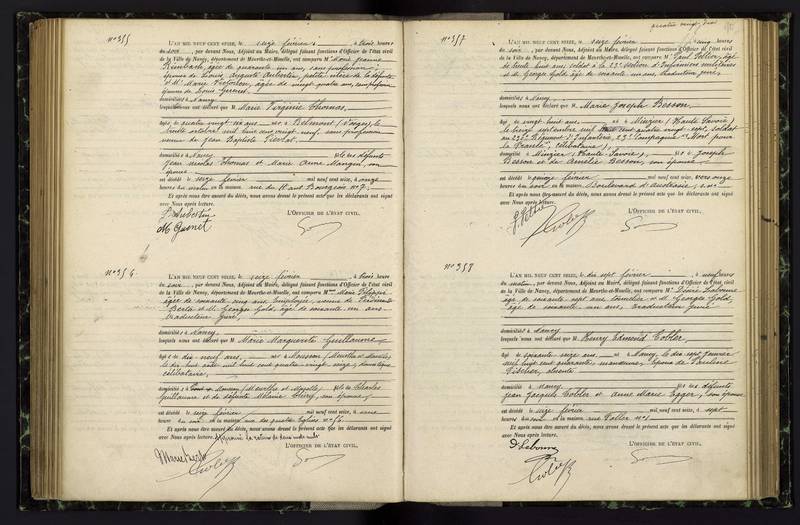 quatre vingt dix
N° 355
L'AN MIL NEUF CENT SEIZE, le seize février, à trois heures
du soir, par devant Nous, Adjoint au Maire, délégué faisant fonctions d'Officier de l'état civil
de la Ville de Nancy, département de Meurthe-et-Moselle, ont comparu Marie Jeanne
âgée de quarante un ans, sans profession
épouse de Louis Auguste Aubertin, petite nièce de la défunte
et Marie Victorion, âgée de vingt quatre ans, sans profession
épouse de Louis
domiciliés à Nancy
lesquels nous ont déclaré que Marie Virginie Thomas,
âgée de quatre vingt six ans née à Belmont (Vosges), le
trente octobre mil huit cent vingt neuf, sans profession
veuve de Jean Baptiste
domiciliée à Nancy fille des défunts
Jean Nicolas Thomas et Marie Anne Mangin, son
épouse
est décédée le seize février mil neuf cent seize, à onze
heures du matin en la maison rue du Haut Bourgeois n° 7;
Et après nous être assuré du décès, nous avons dressé le présent acte que les déclarants ont signé
avec Nous après lecture.
L'OFFICIER DE L'ÉTAT CIVIL,
Aubertin
N° 356
L'AN MIL NEUF CENT SEIZE, le seize février, à trois heures
du soir, par devant Nous, Adjoint au Maire, délégué faisant fonctions d'Officier de l'état civil
de la Ville de Nancy, département de Meurthe-et-Moselle, ont comparu Marie Philippe
âgée de soixante cinq ans, employée, veuve de
Berta et M. Georges Gold, âgé de soixante un ans
traducteur juré,
domiciliés à Nancy
lesquels nous ont déclaré que Marie Marguerite Guillaume
âgée de dix neuf ans, née à Mousson (Meurthe et Moselle),
le dix huit août mil huit cent quatre vingt seize, domestique
célibataire,
domiciliée à Mousson (Meurthe et Moselle) fille de Charles
Guillaume et de défunte Mélanie Thiéry, son épouse
est décédée le seize février mil neuf cent seize, à une
heure du soir en la maison rue des quatre Eglises n° 54
Et après nous être assuré du décès, nous avons dressé le présent acte que les déclarants ont signé
avec Nous après lecture. Approuvé la rature de deux mots nuls
L'OFFICIER DE L'ÉTAT CIVIL,
N° 357
L'AN MIL NEUF CENT SEIZE, le seize février, à cinq heures
du soir, par devant Nous, Adjoint au Maire, délégué faisant fonctions d'Officier de l'état civil
de la Ville de Nancy, département de Meurthe-et-Moselle, ont comparu M. Paul Peltier, âgé
de trente huit ans, soldat à la 23e section d'Infirmiers militaires
et M. Georges Gold âgé de soixante un ans, traducteur juré,
domiciliés à Nancy
lesquels nous ont déclaré que M. Marie Joseph Besson,
âgé de vingt huit ans né à Minzier (Haute Savoie)
le treize septembre mil huit cent quatre vingt sept, soldat
au Régiment d'Infanterie, 23e Compagnie "Mort pour
la France", célibataire,
domicilié à Minzier (Haute-Savoie), fils de Joseph
Besson et de Amélie Besson, son épouse
est décédé le quinze février mil neuf cent seize, vers onze
heures du soir en la maison Boulevard d'Austrasie, s. n°
Et après nous être assuré du décès, nous avons dressé le présent acte que les déclarants ont signé
avec Nous après lecture.
L'OFFICIER DE L'ÉTAT CIVIL,
N° 358
L'AN MIL NEUF CENT SEIZE, le dix sept février, à neuf heures
du matin, par devant Nous, Adjoint au Maire, délégué faisant fonctions d'Officier de l'état civil
de la Ville de Nancy, département de Meurthe-et-Moselle, ont comparu M. Désiré Lebourne
âgé de soixante sept ans, tonnelier et M. Georges Gold,
âgé de soixante un ans, traducteur juré
domiciliés à Nancy
lesquels nous ont déclaré que M. Henry Edmond Cobler,
âgé de soixante seize ans, né à Nancy, le dix sept janvier
mil huit cent quarante, manœuvre, époux de Pauline
Discher,
domicilié à Nancy fils des défunts
Jean Jacques Cobler et Anne Marie Egger, son épouse
est décédé le seize février mil neuf cent seize, à sept
heures du soir en la maison rue
Et après nous être assuré du décès, nous avons dressé le présent acte que les déclarants ont signé
avec Nous après lecture.
L'OFFICIER DE L'ÉTAT CIVIL,
D Lebourne